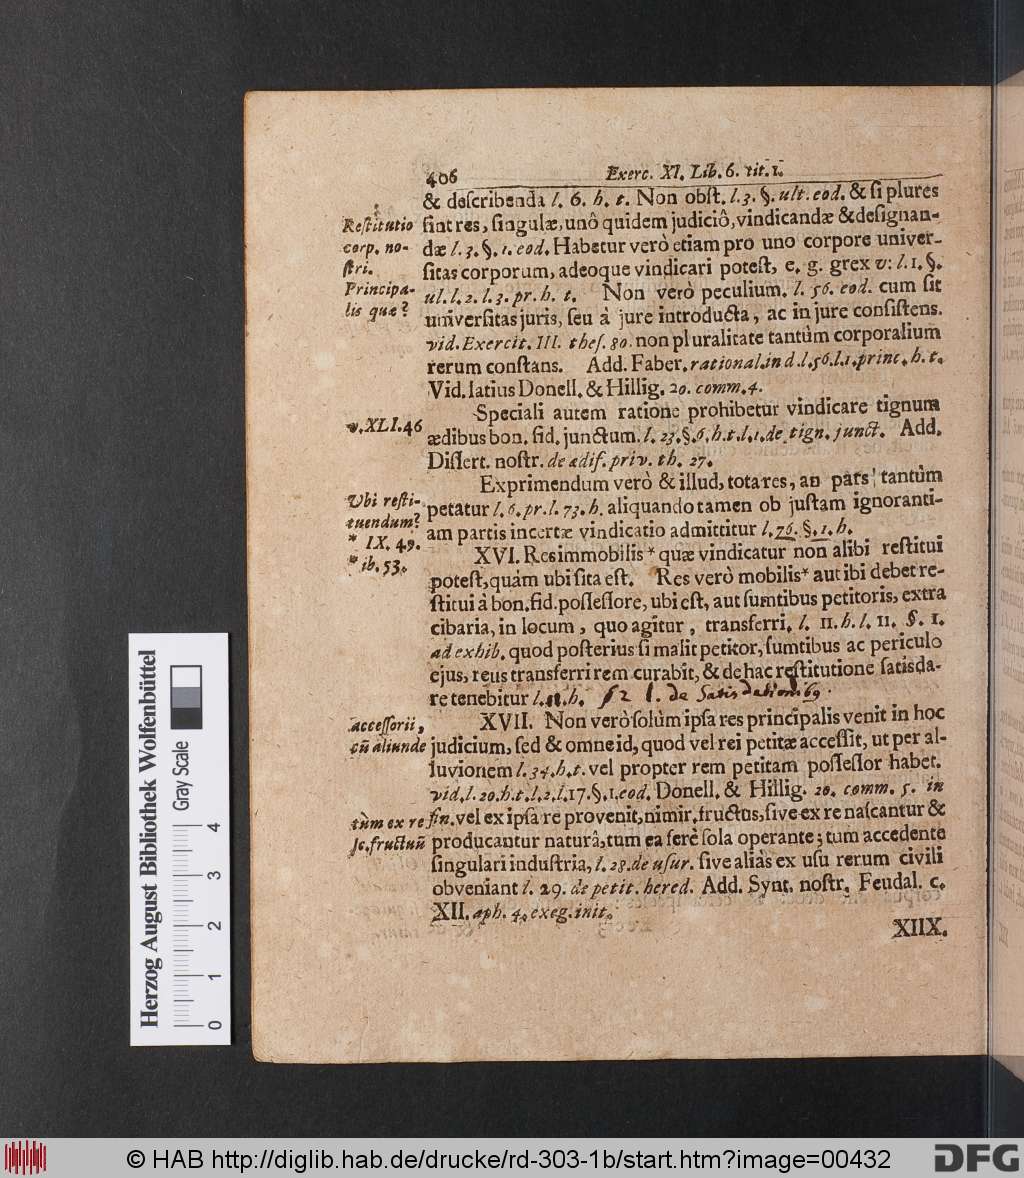 406 Exerc. XI. Lib. 6. tit. 1.
& describenda l. 6. h. t. Non obst. l. 3. §. ult. eod. & si plures
sint res, singulæ, unô quidem judiciô, vindicandæ & designan-
dæ l. 3. §. 1. eod. Habetur verò etiam pro uno corpore univer-
sitas corporum, adeoque vindicari potest, e. g. grex v: l. 1. §.
ul. l. 2. l. 3. pr. h. t. Non verò peculium. l. 56. eod. cum sit
universitas juris, seu à jure introducta, ac in jure consistens.
vid. Exercit. III. thes. 80. non pluralitate tantùm corporalium
rerum constans. Add. Faber. rational. in d. l. 56. l. 1. princ. h. t.
Vid. latius Donell. & Hillig. 20. comm. 4.
Restitutio
corp. no-
stri.
Principa-
lis quæ?
Speciali autem ratione prohibetur vindicare tignum
ædibus bon. fid. junctum. l. 23. §. 6. h. t. l. 1. de tign. junct. Add.
Dissert. nostr. de ædif. priv. th. 27.
v. XLI. 46
Exprimendum verò & illud, tota res, an pars tantùm
petatur l. 6. pr. l. 73. h. aliquando tamen ob justam ignoranti-
am partis incertæ vindicatio admittitur l. 76. §. 1. h.
Ubi resti-
tuendum?
* IX. 49.
* ib. 53.
XVI. Res immobilis * quæ vindicatur non alibi restitui
potest, quàm ubi sita est. Res verò mobilis * aut ibi debet re-
stitui à bon. fid. possessore, ubi est, aut sumtibus petitoris, extra
cibaria, in locum, quo agitur, transferri. l. 11. h. l. 11. §. 1.
ad exhib. quod posterius si malit petitor, sumtibus ac periculo
ejus, reus transferri rem curabit, & de hac restitutione satisda-
re tenebitur l. 11. h. l. de Satisdationib9.
XVII. Non verò solùm ipsa res principalis venit in hoc
judicium, sed & omne id, quod vel rei petitæ accessit, ut per al-
luvionem l. 34. h. t. vel propter rem petitam possessor habet.
vid. l. 20. h. t. l. 2. l. 17. §. 1. eod. Donell. & Hillig. 20. comm. 5. in
fin. vel ex ipsa re provenit, nimir. fructus, sive ex re nascantur &
producantur naturâ, tum ea ferè sola operante; tum accedente
singulari industria, l. 28. de usur. sive aliàs ex usu rerum civili
obveniant l. 29. de petit. hered. Add. Synt. nostr. Feudal. c.
XII. aph. 4. exeg. init.
accessorii,
cũ aliunde
tùm ex re
sc. fructuũ
XIIX.
Herzog August Bibliothek Wolfenbüttel
Gray Scale
0 1 2 3 4
© HAB http://diglib.hab.de/drucke/rd-303-1b/start.htm?image=00432
DFG